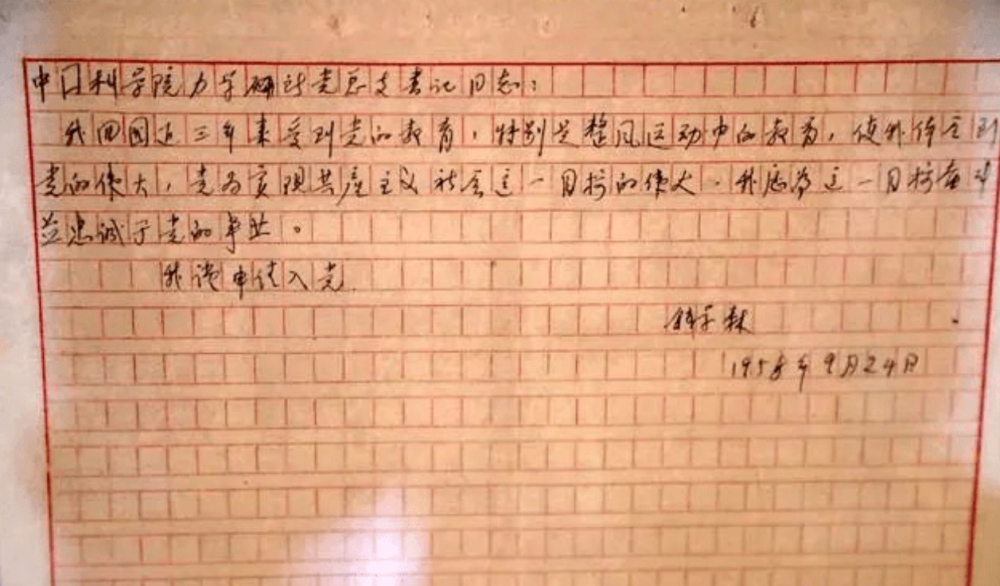 中国科学院力学研所党总支书记同志：
我回国近三年来受到党的教育，特别是整风运动中的教育，使我体会到
党的伟大，党为实现共产主义社会这一目标的伟大。我愿为这一目标奋斗
並忠诚于党的事业。
我谨申请入党
钱学森
1958年9月24日